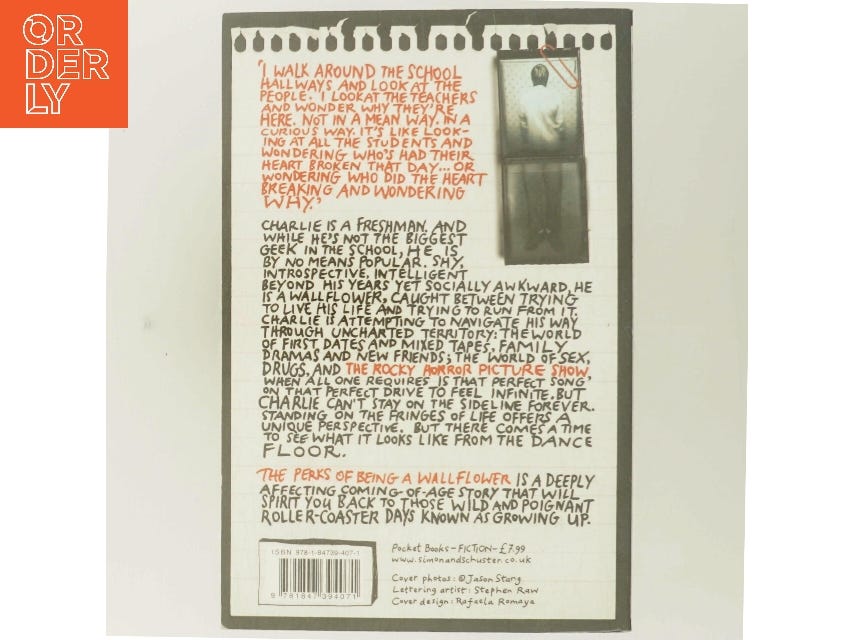 OR
DER
LY
'I WALK AROUND THE SCHOOL
HALLWAYS AND LOOK AT THE
PEOPLE. I LOOK AT THE TEACHERS
AND WONDER WHY THEY'RE
HERE. NOT IN A MEAN WAY. IN A
CURIOUS WAY. IT'S LIKE LOOK-
ING AT ALL THE STUDENTS AND
WONDERING WHO'S HAD THEIR
HEART BROKEN THAT DAY... OR
WONDERING WHO DID THE HEART
BREAKING AND WONDERING
WHY.'
CHARLIE IS A FRESHMAN. AND
WHILE HE'S NOT THE BIGGEST
GEEK IN THE SCHOOL, HE IS
BY NO MEANS POPULAR. SHY,
INTROSPECTIVE, INTELLIGENT
BEYOND HIS YEARS YET SOCIALLY AWKWARD, HE
IS A WALLFLOWER, CAUGHT BETWEEN TRYING
TO LIVE HIS LIFE AND TRYING TO RUN FROM IT.
CHARLIE IS ATTEMPTING TO NAVIGATE HIS WAY
THROUGH UNCHARTED TERRITORY: THE WORLD
OF FIRST DATES AND MIXED TAPES, FAMILY
DRAMAS AND NEW FRIENDS; THE WORLD OF SEX,
DRUGS, AND THE ROCKY HORROR PICTURE SHOW,
WHEN ALL ONE REQUIRES IS THAT PERFECT SONG
ON THAT PERFECT DRIVE TO FEEL INFINITE. BUT
CHARLIE CAN'T STAY ON THE SIDELINE FOREVER.
STANDING ON THE FRINGES OF LIFE OFFERS A
UNIQUE PERSPECTIVE. BUT THERE COMES A TIME
TO SEE WHAT IT LOOKS LIKE FROM THE DANCE
FLOOR.
THE PERKS OF BEING A WALLFLOWER IS A DEEPLY
AFFECTING COMING-OF-AGE STORY THAT WILL
SPIRIT YOU BACK TO THOSE WILD AND POIGNANT
ROLLER-COASTER DAYS KNOWN AS GROWING UP.
ISBN 978-1-84739-407-1
9 781847 394071
Pocket Books - FICTION - £7.99
www.simonandschuster.co.uk
Cover photos: © Jason Stang
Lettering artist: Stephen Raw
Cover design: Rafaela Romaya